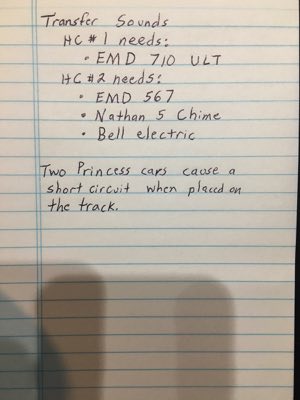 Transfer Sounds
HC #1 needs:
• EMD 710 ULT
HC #2 needs:
• EMD 567
• Nathan 5 Chime
• Bell electric
Two Princess cars cause a
short circuit when placed on
the track.